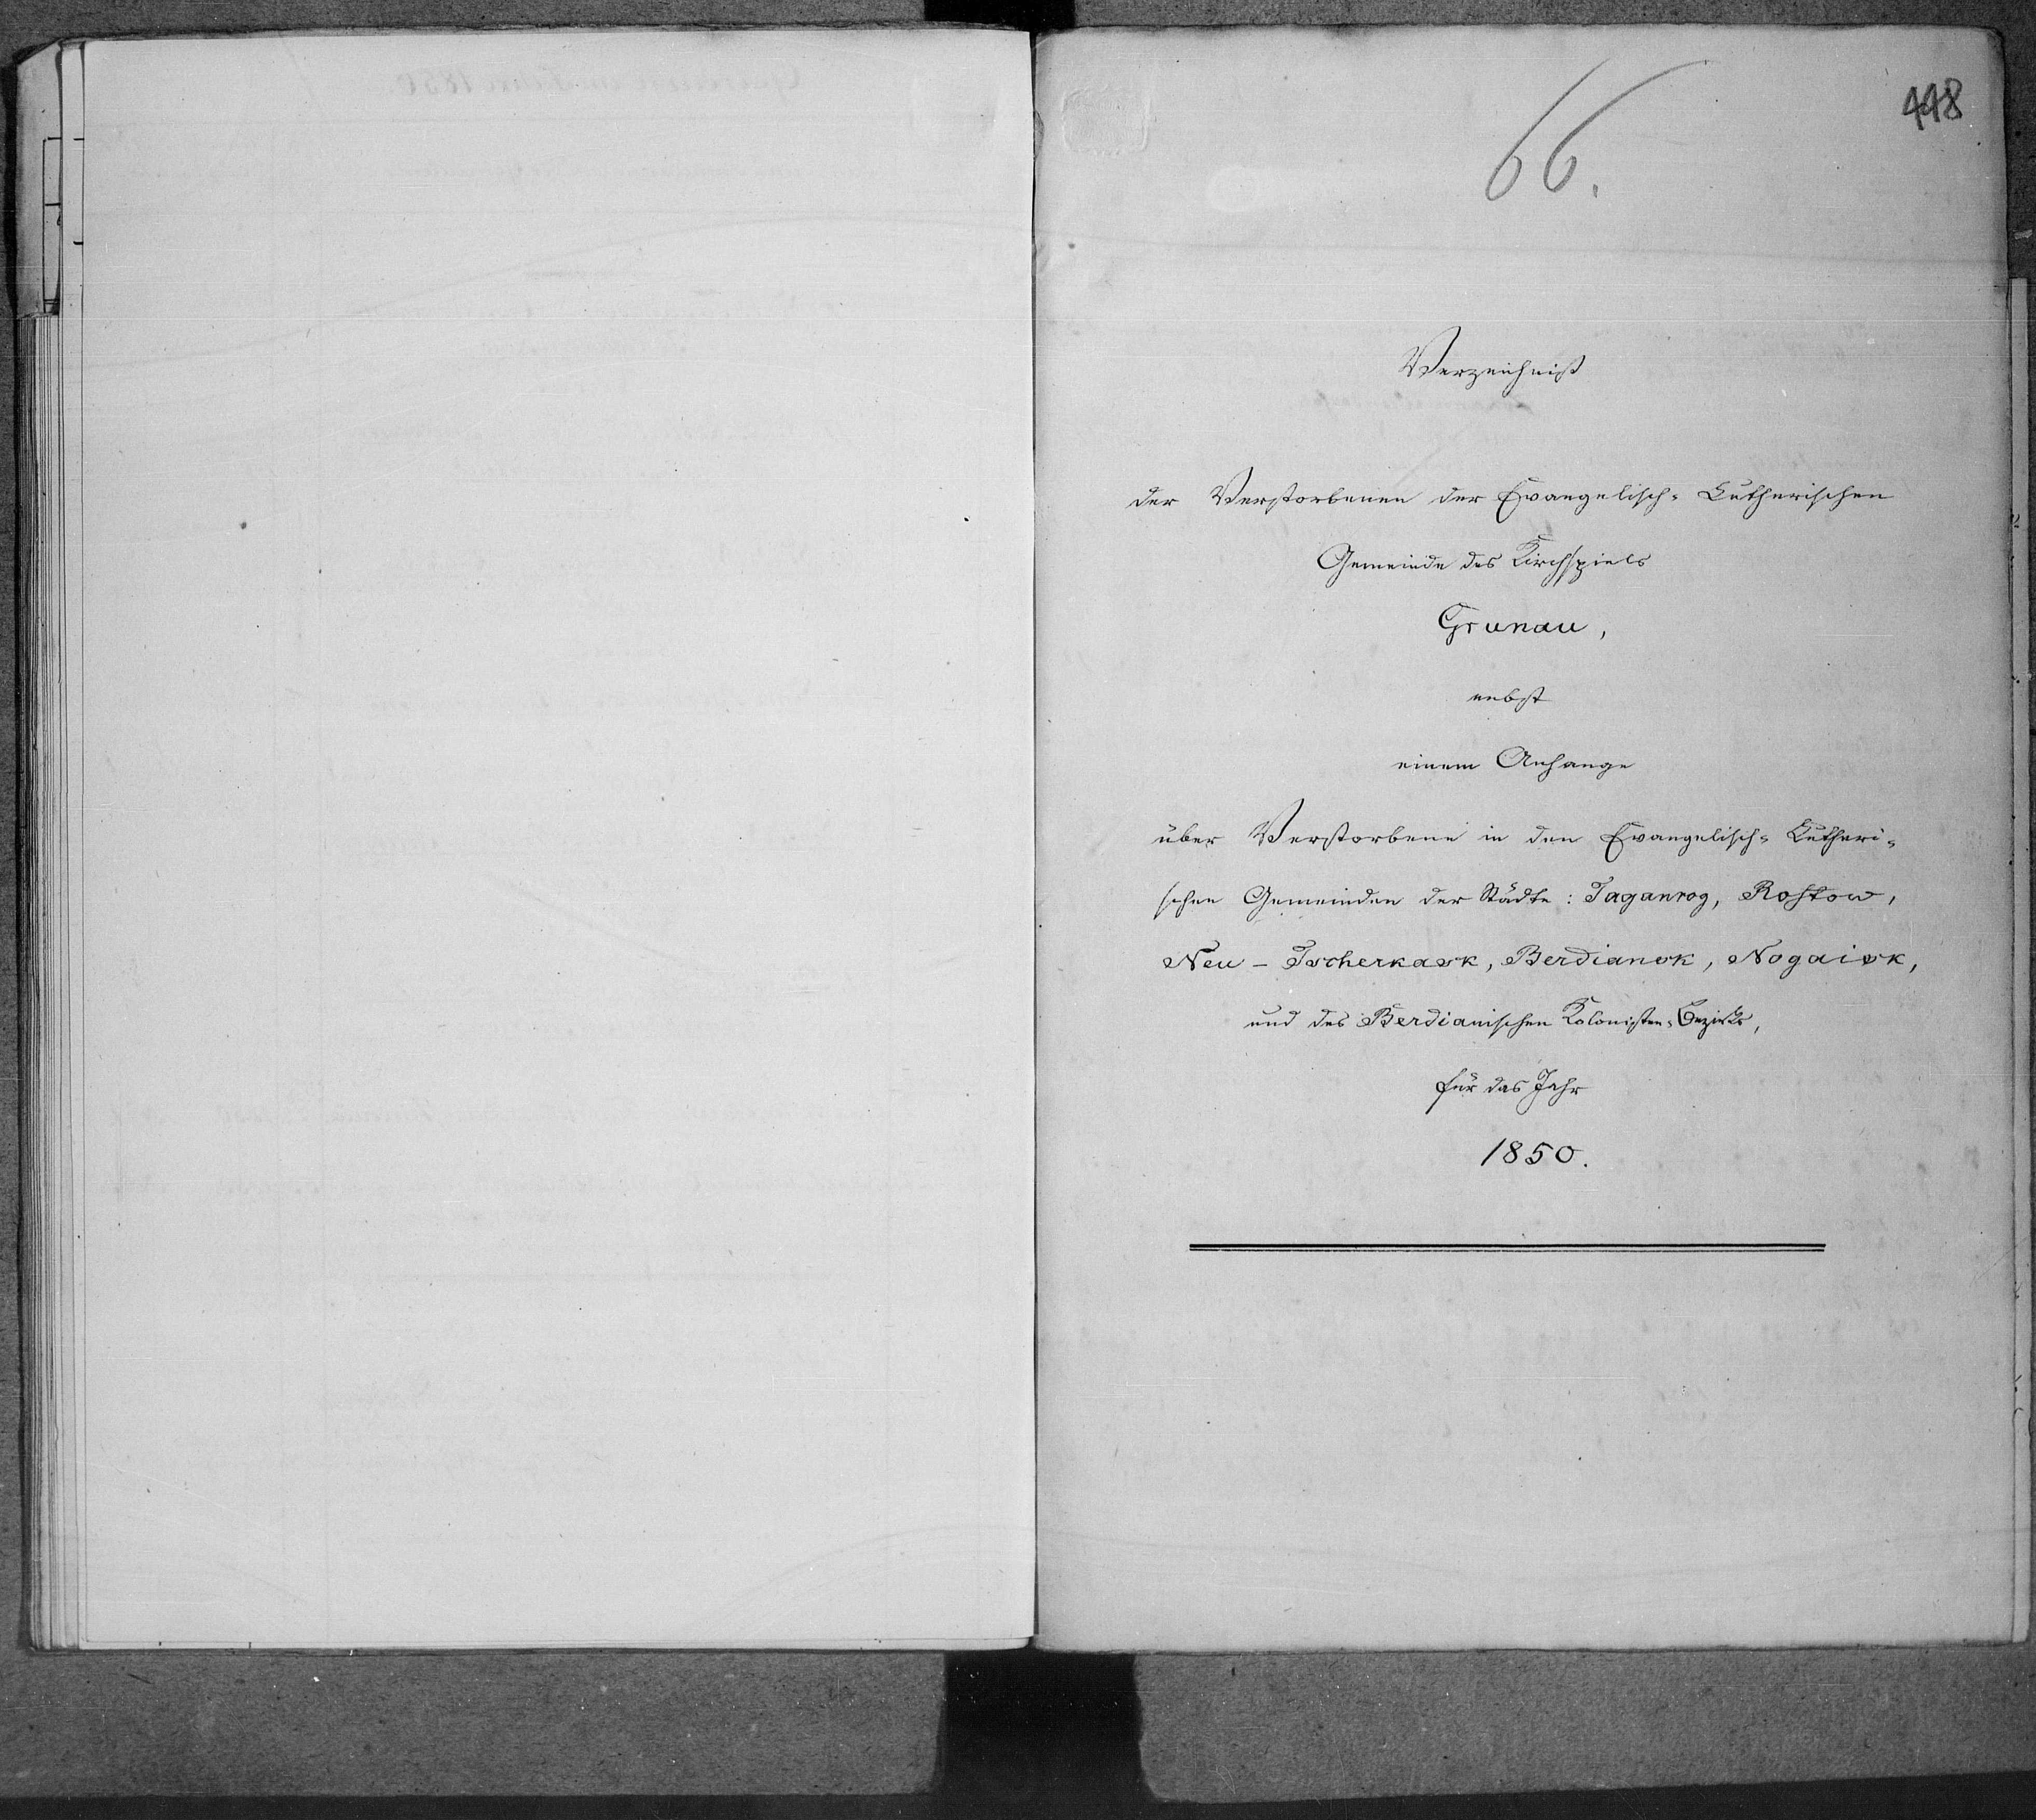 448
66.
Verzeichniß
der Verstorbenen der Evangelisch-Lutherischen
Gemeinde des Kirchspiels
Grunau,
nebst
einem Anhange
über Verstorbene in den Evangelisch-Lutheri-
schen Gemeinden der Städte: Taganrog, Rostow,
Neu-Tscherkask, Berdiansk, Nogaisk,
und des Berdianischen Kolonisten-Bezirks,
für das Jahr
1850.